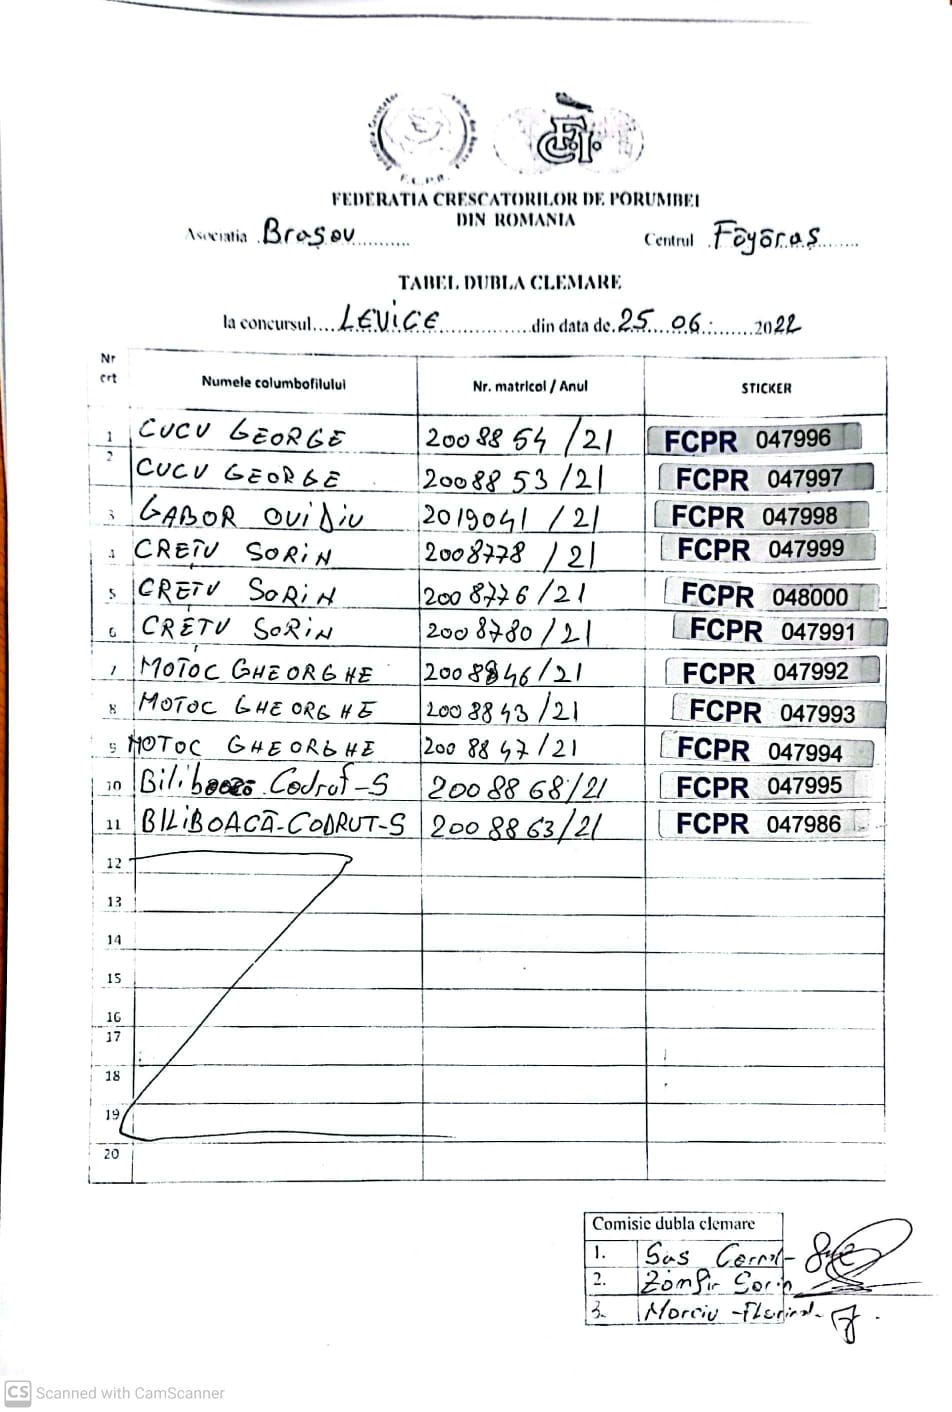 F.C.P.R.
FEDERATIA CRESCATORILOR DE PORUMBEI
DIN ROMANIA
Asociatia Braşov Centrul Făgăraş
TABEL DUBLA CLEMARE
la concursul LEVICE din data de 25 06. 2022
Nr crt Numele columbofilului Nr. matricol / Anul STICKER
1 CUCU GEORGE 2008854/21 FCPR 047996
2 CUCU GEORGE 2008853/21 FCPR 047997
3 GABOR OViDiU 2019041/21 FCPR 047998
4 CREŢU SORiN 2008778/21 FCPR 047999
5 CREŢU SORiN 2008776/21 FCPR 048000
6 CREŢU SORiN 2008780/21 FCPR 047991
7 MOTOC GHEORGHE 2008846/21 FCPR 047992
8 MOTOC GHEORGHE 2008843/21 FCPR 047993
9 MOTOC GHEORGHE 2008847/21 FCPR 047994
10 Codruţ-S 2008868/21 FCPR 047995
11 BILiBOACĂ-CODRUT-S 2008863/21 FCPR 047986
12
13
14
15
16
17
18
19
20
Comisie dubla clemare
1. Sas
2. Zamfir Sorin
3. Morciu
CS Scanned with CamScanner